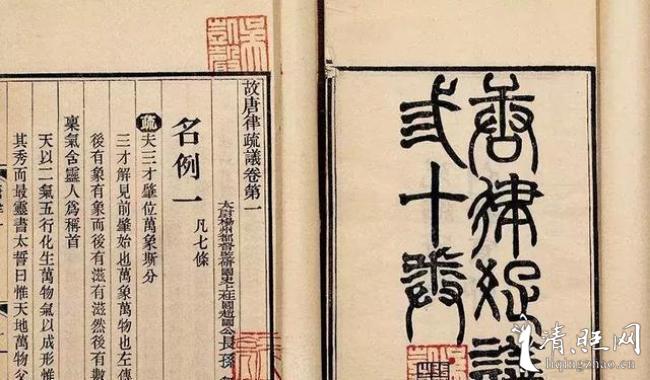 唐律疏議
弎十卷
故唐律疏議卷第一
太尉揚州都督監修國史上柱國趙國公長孫
名例一 凡七條
疏 夫三才肇位萬象斯分
三才解見前肇始也萬象萬物也左傳
後有象有象而後有滋有滋然後有數
稟氣含靈人爲稱首
天以二氣五行化生萬物氣以成形惟
其秀而最靈書太誓曰惟天地萬物父
清旺网
liqingzhao.cn